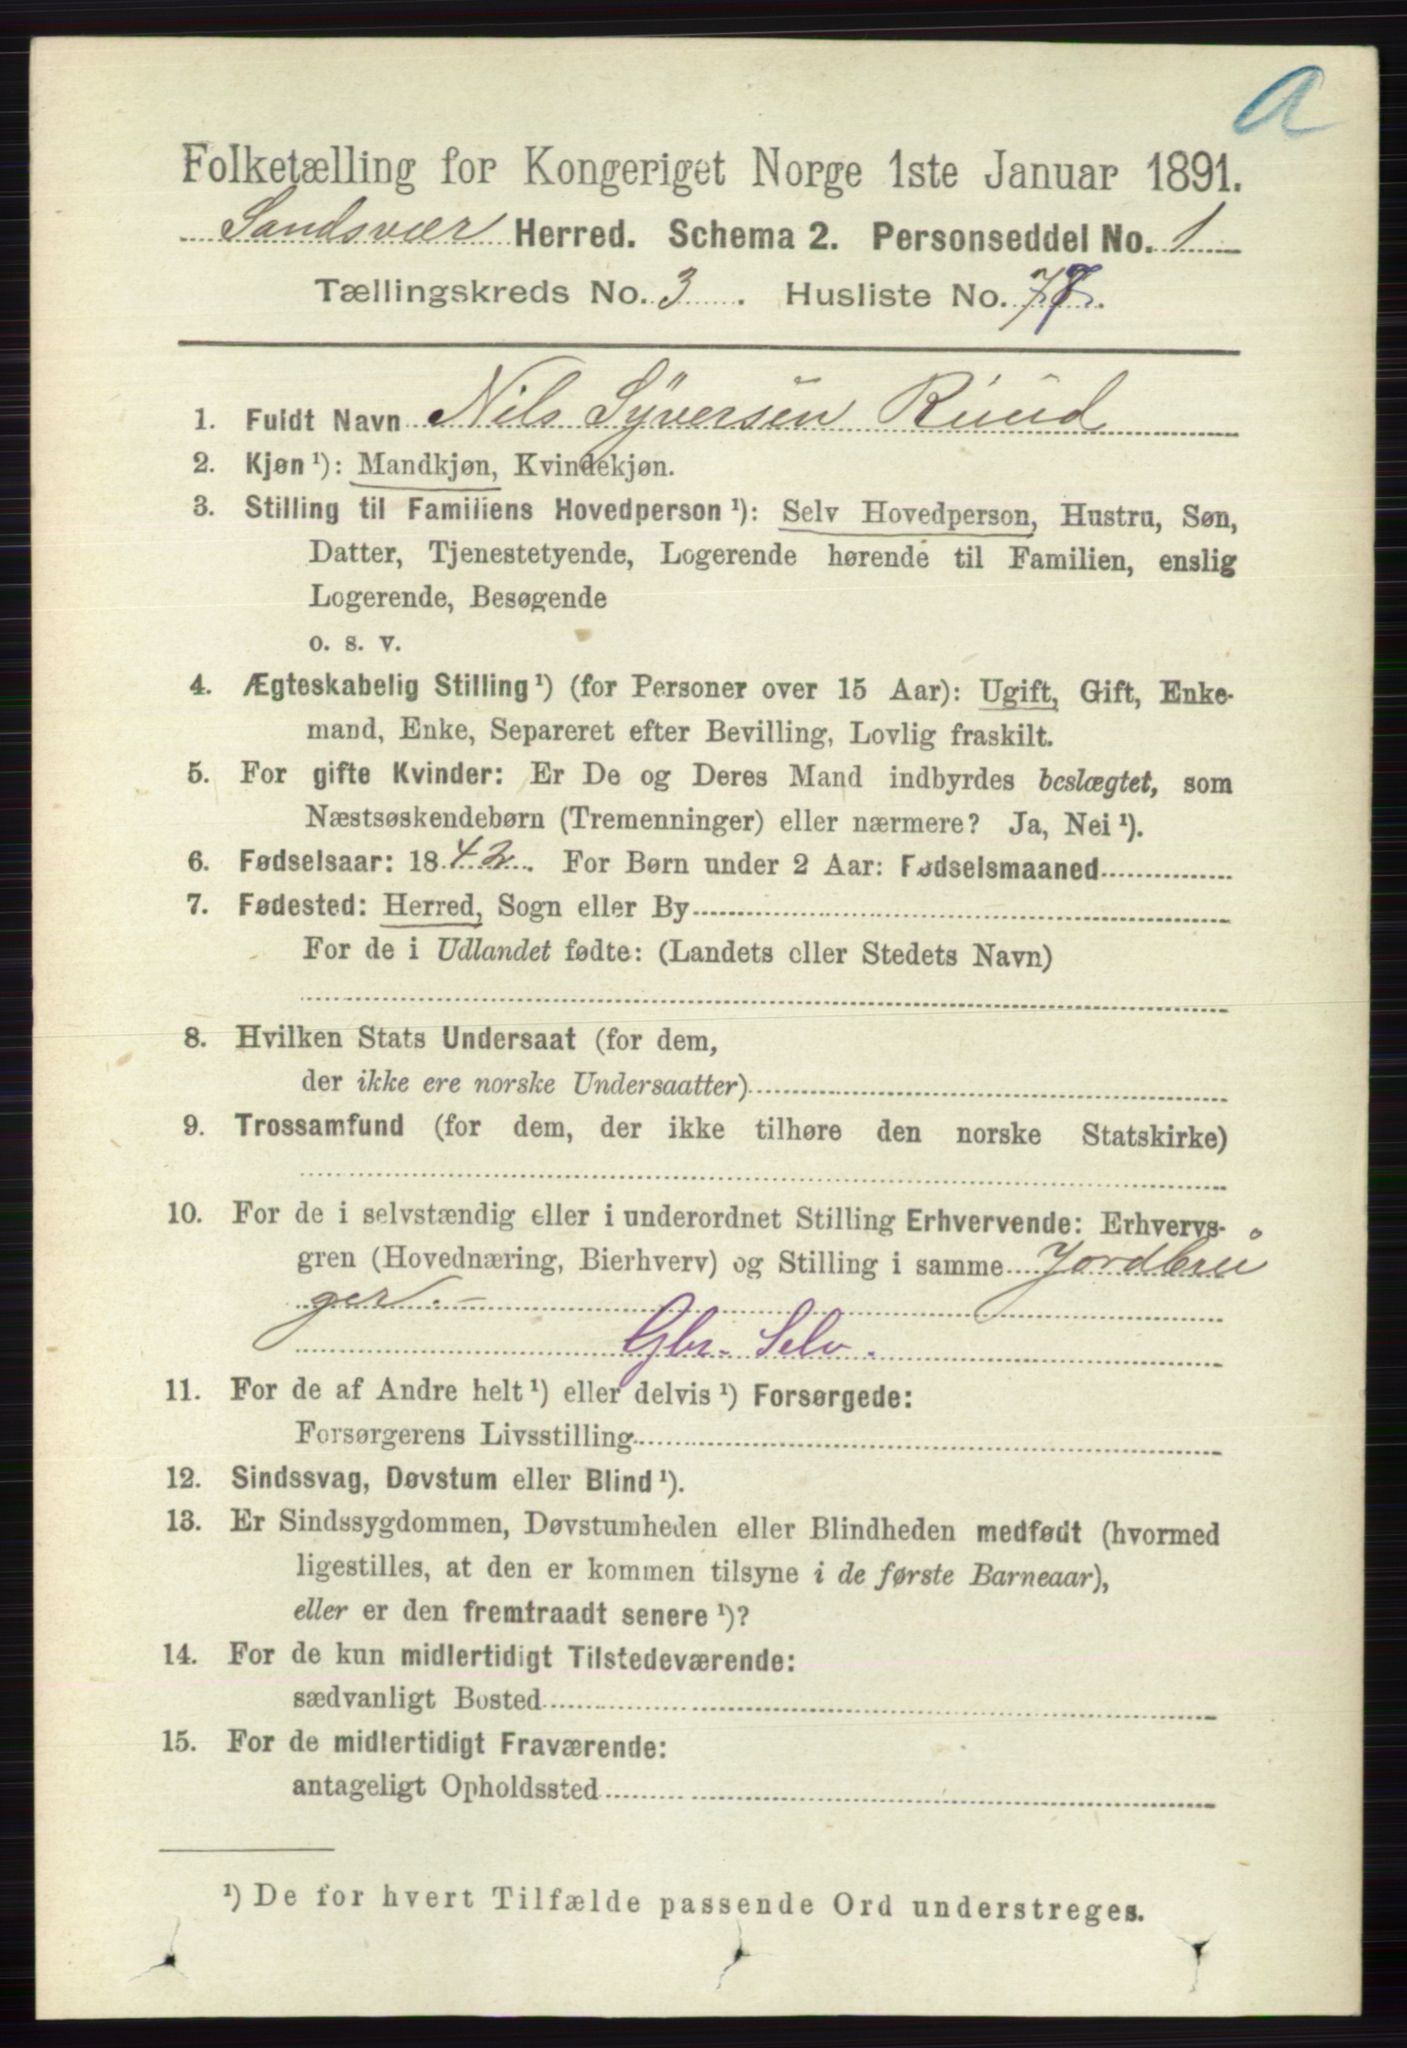 a
Folketælling for Kongeriget Norge 1ste Januar 1891.
Sandsvær Herred. Schema 2. Personseddel No. 1
Tællingskreds No. 3. Husliste No. 77.
1. Fuldt Navn Nils Syversen Ruud
2. Kjøn ¹): Mandkjøn, Kvindekjøn.
3. Stilling til Familiens Hovedperson ¹): Selv Hovedperson, Hustru, Søn,
Datter, Tjenestetyende, Logerende hørende til Familien, enslig
Logerende, Besøgende
o. s. v.
4. Ægteskabelig Stilling ¹) (for Personer over 15 Aar): Ugift, Gift, Enke-
mand, Enke, Separeret efter Bevilling, Lovlig fraskilt.
5. For gifte Kvinder: Er De og Deres Mand indbyrdes beslægtet, som
Næstsøskendebørn (Tremenninger) eller nærmere? Ja, Nei ¹).
6. Fødselsaar: 1842. For Børn under 2 Aar: Fødselsmaaned
7. Fødested: Herred, Sogn eller By
For de i Udlandet fødte: (Landets eller Stedets Navn)
8. Hvilken Stats Undersaat (for dem,
der ikke ere norske Undersaatter)
9. Trossamfund (for dem, der ikke tilhøre den norske Statskirke)
10. For de i selvstændig eller i underordnet Stilling Erhvervende: Erhvervs-
gren (Hovednæring, Bierhverv) og Stilling i samme Jordbru
ger. -
Gbr. Selv.
11. For de af Andre helt ¹) eller delvis ¹) Forsørgede:
Forsørgerens Livsstilling
12. Sindssvag, Døvstum eller Blind ¹).
13. Er Sindssygdommen, Døvstumheden eller Blindheden medfødt (hvormed
ligestilles, at den er kommen tilsyne i de første Barneaar),
eller er den fremtraadt senere ¹)?
14. For de kun midlertidigt Tilstedeværende:
sædvanligt Bosted
15. For de midlertidigt Fraværende:
antageligt Opholdssted
¹) De for hvert Tilfælde passende Ord understreges.